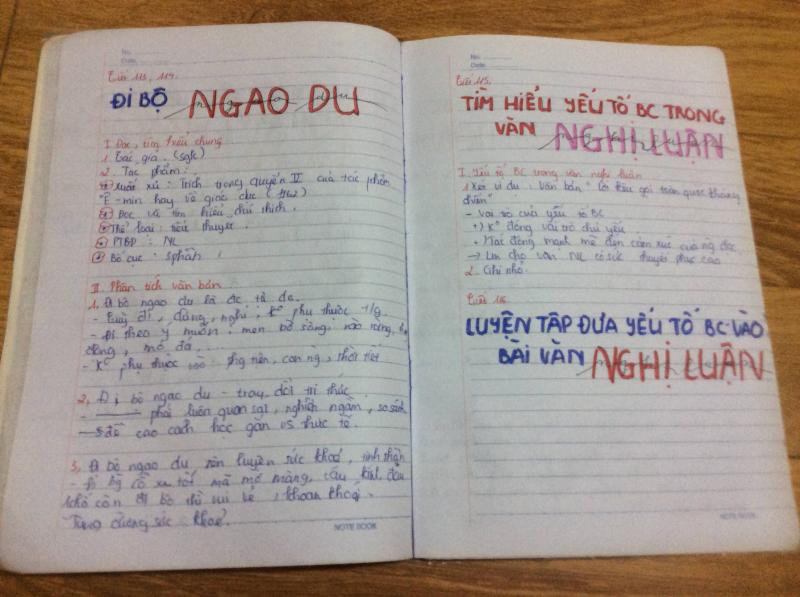 No.
Date
Tiết 113, 114.
ĐI BỘ NGAO DU
I. Đọc, tìm hiểu chung
1. Tác giả. (sgk)
2. Tác phẩm:
Xuất xứ: Trích trong quyển V của tác phẩm
"Ê-min hay về giáo dục (1762)
Đọc và tìm hiểu chú thích.
Thể loại: tiểu thuyết.
PTBĐ: NL
Bố cục: 3 phần
II. Phân tích văn bản
1. Đi bộ ngao du là đc tự do.
- tuỳ đi, dừng, nghỉ, ko phụ thuộc
- Đi theo ý muốn: men bờ sông, vào rừng,
động, mỏ đá.
- Ko phụ thuộc vào: phg tiện, con ng, thời tiết
2, Đi bộ ngao du - trau dồi tri thức
- phải luôn quan sát, nghiền ngẫm, so sánh
đề cao cách học gắn vs thực tế.
3, Đi bộ ngao du rèn luyện sức khoẻ, tinh thần
- Đi cỗ xe tốt mà mơ màng, cáu kỉnh, đau
khổ còn đi bộ thì vui vẻ, khoan khoái.
Tăng cường sức khoẻ.
NOTE BOOK
No.
Date
Tiết 115.
TÌM HIỂU YẾU TỐ BC TRONG
VĂN NGHỊ LUẬN
I. Yếu tố BC trong văn nghị luận
1. Xét ví dụ: Văn bản "Lời kêu gọi toàn quốc kháng
chiến"
- Vai trò của yếu tố BC
+) Ko đóng vai trò chủ yếu
+ Tác động mạnh mẽ đến cảm xúc của ng đọc
→ Làm cho văn NL có sức thuyết phục cao
2. Ghi nhớ.
LUYỆN TẬP ĐƯA YẾU TỐ BC VÀO
BÀI VĂN NGHỊ LUẬN
NOTE BOOK